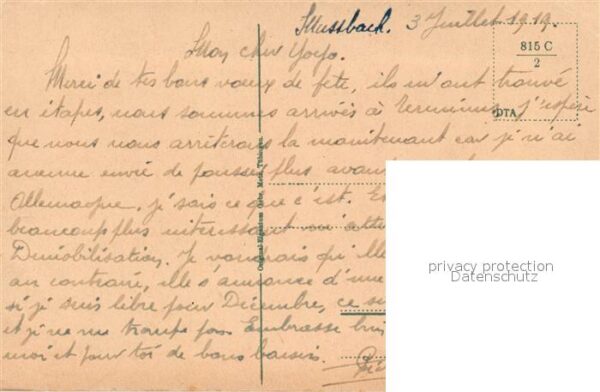 Mussbach. 3 Juillet 1919.
Mon cher Yoyo.
815 C
2
DTA.
Merci de tes bons vœux de fête, ils m'ont trouvé
en étapes, nous sommes arrivés à Terminus, j'espère
que nous nous arrêterons là maintenant car je n'ai
aucune envie de pousser plus avant
Allemagne, je sais ce que c'est.
beaucoup plus intéressant
Démobilisation. Je voudrais qu'elle
au contraire, elle s'annonce d'une
si je suis libre pour Décembre, ce
et je ne me trompe pas Embrasse
moi et pour toi de bons baisers.
privacy protection
Datenschutz